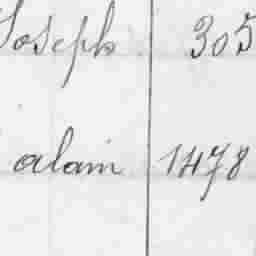 Joseph 305
alain 1478